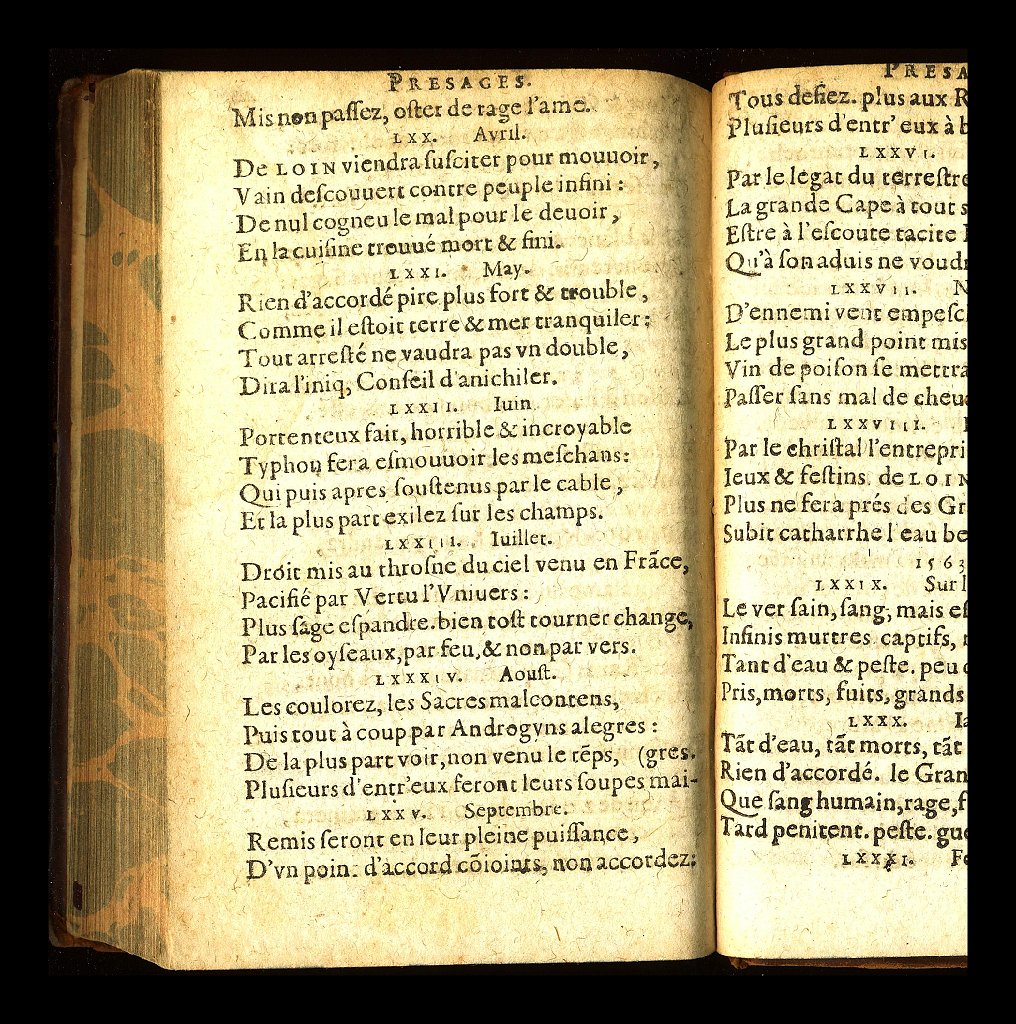 PRESAGES.
Mis non passez, oster de rage l'ame.
LXX. Avril.
De LOIN viendra susciter pour mouuoir,
Vain descouuert contre peuple infini:
De nul cogneu le mal pour le deuoir,
En la cuisine trouué mort & fini.
LXXI. May.
Rien d'accordé pire plus fort & trouble,
Comme il estoit terre & mer tranquiler:
Tout arresté ne vaudra pas vn double,
Dira l'iniq, Conseil d'anichiler.
LXXII. Iuin
Portenteux fait, horrible & incroyable
Typhon fera esmouuoir les meschans:
Qui puis apres soustenus par le cable,
Et la plus part exilez sur les champs.
LXXIII. Iuillet.
Droit mis au throsne du ciel venu en Frãce,
Pacifié par Vertu l'Vniuers:
Plus sage espandre. bien tost tourner change,
Par les oyseaux, par feu, & non par vers.
LXXXIV. Aoust.
Les coulorez, les Sacres malcontens,
Puis tout à coup par Androgyns alegres:
De la plus part voir, non venu le tẽps, (gres.
Plusieurs d'entr'eux feront leurs soupes mai-
LXXV. Septembre.
Remis seront en leur pleine puissance,
D'vn point d'accord cõioints, non accordez:
PRESA
Tous defiez. plus aux R
Plusieurs d'entr' eux à b
LXXVI.
Par le legat du terrestre
La grande Cape à tout s
Estre à l'escoute tacite
Qu'à son aduis ne voudr
LXXVII. N
D'ennemi vent empesc
Le plus grand point mis
Vin de poison se mettra
Passer sans mal de cheu
LXXVIII.
Par le christal l'entrepri
Ieux & festins. de LOIN
Plus ne fera prés des Gr
Subit catharrhe l'eau be
1563
LXXIX. Sur l
Le ver sain, sang, mais es
Infinis murtres captifs,
Tant d'eau & peste. peu
Pris, morts, fuits, grands
LXXX. Ia
Tãt d'eau, tãt morts, tãt
Rien d'accordé. le Gran
Que sang humain, rage, f
Tard penitent. peste. gue
LXXXI. Fe